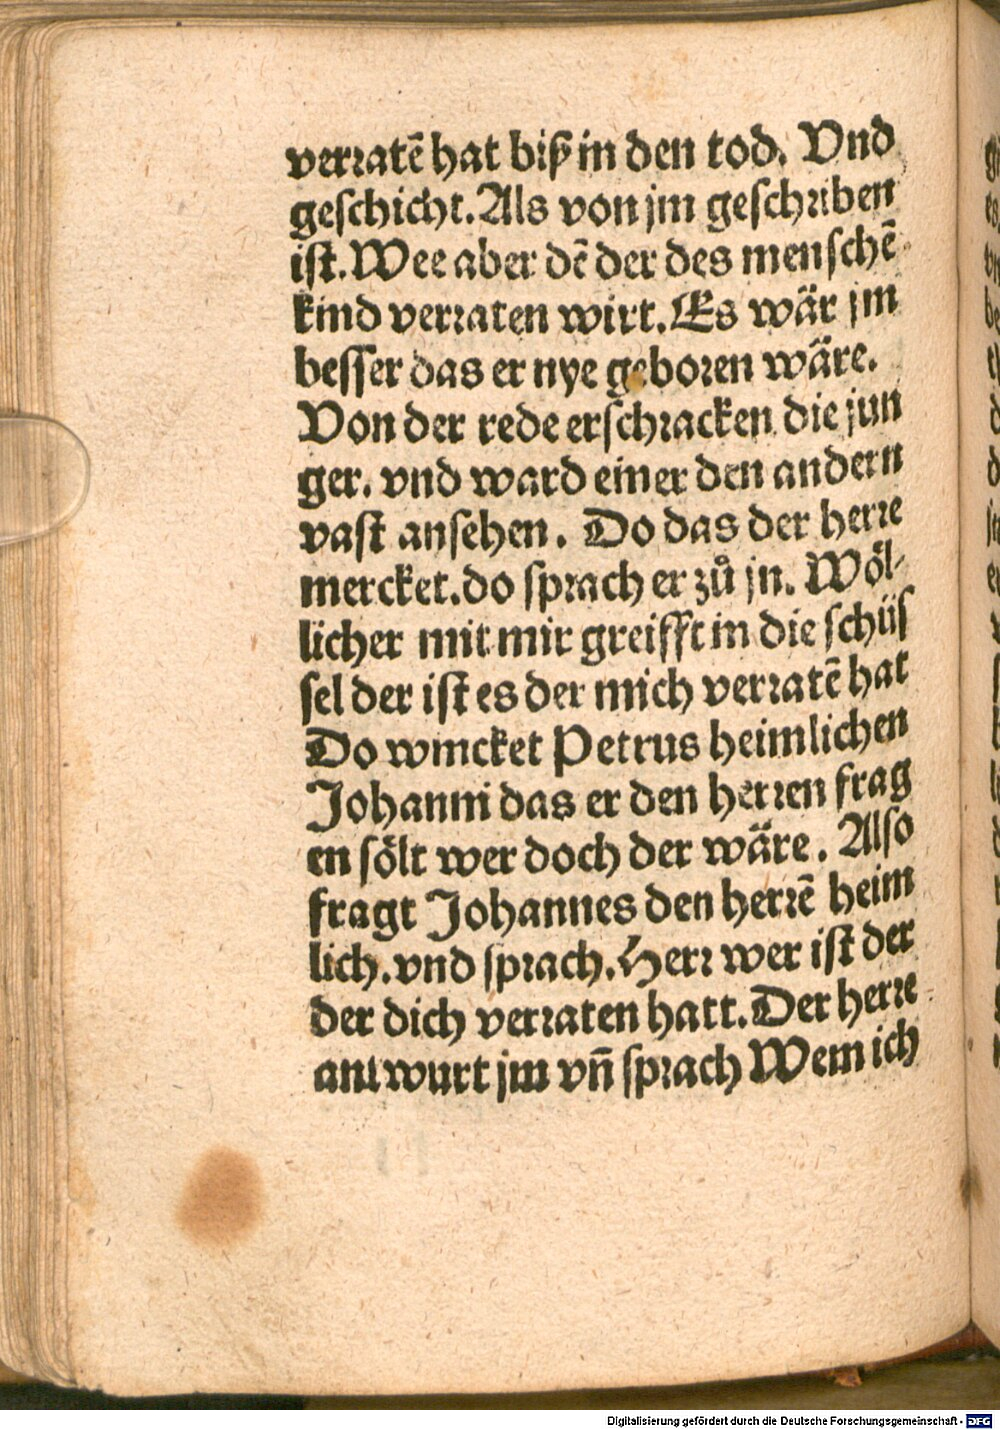 verratē hat biß in den tod. Vnd
geschicht. Als von jm geschriben
ist. Wee aber dē der des menschē
kind verraten wirt. Es wär jm
besser das er nye geboren wäre.
Von der rede erschracken die jun
ger. vnd ward einer den andern
vast ansehen. Do das der herre
mercket. do sprach er zů jn. Wöl-
licher mit mir greifft in die schüs
sel der ist es der mich verratē hat
Do wincket Petrus heimlichen
Johanni das er den herren frag
en sölt wer doch der wäre. Also
fragt Johannes den herrē heim
lich. vnd sprach. Herr wer ist der
der dich verraten hatt. Der herre
antwurt jm vñ sprach Wem ich
Digitalisierung gefördert durch die Deutsche Forschungsgemeinschaft - DFG